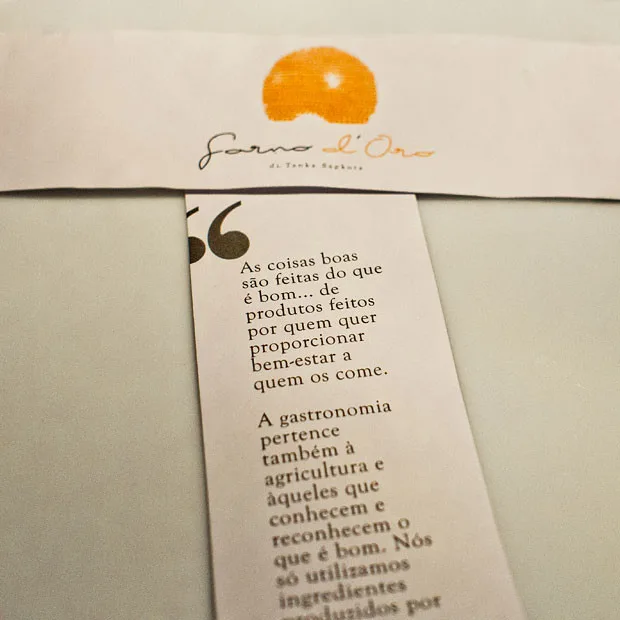 forno d'Oro
di Tanka Sapkota
“
As coisas boas
são feitas do que
é bom... de
produtos feitos
por quem quer
proporcionar
bem-estar a
quem os come.
A gastronomia
pertence
também à
agricultura e
àqueles que
conhecem e
reconhecem o
que é bom. Nós
só utilizamos
ingredientes
produzidos por